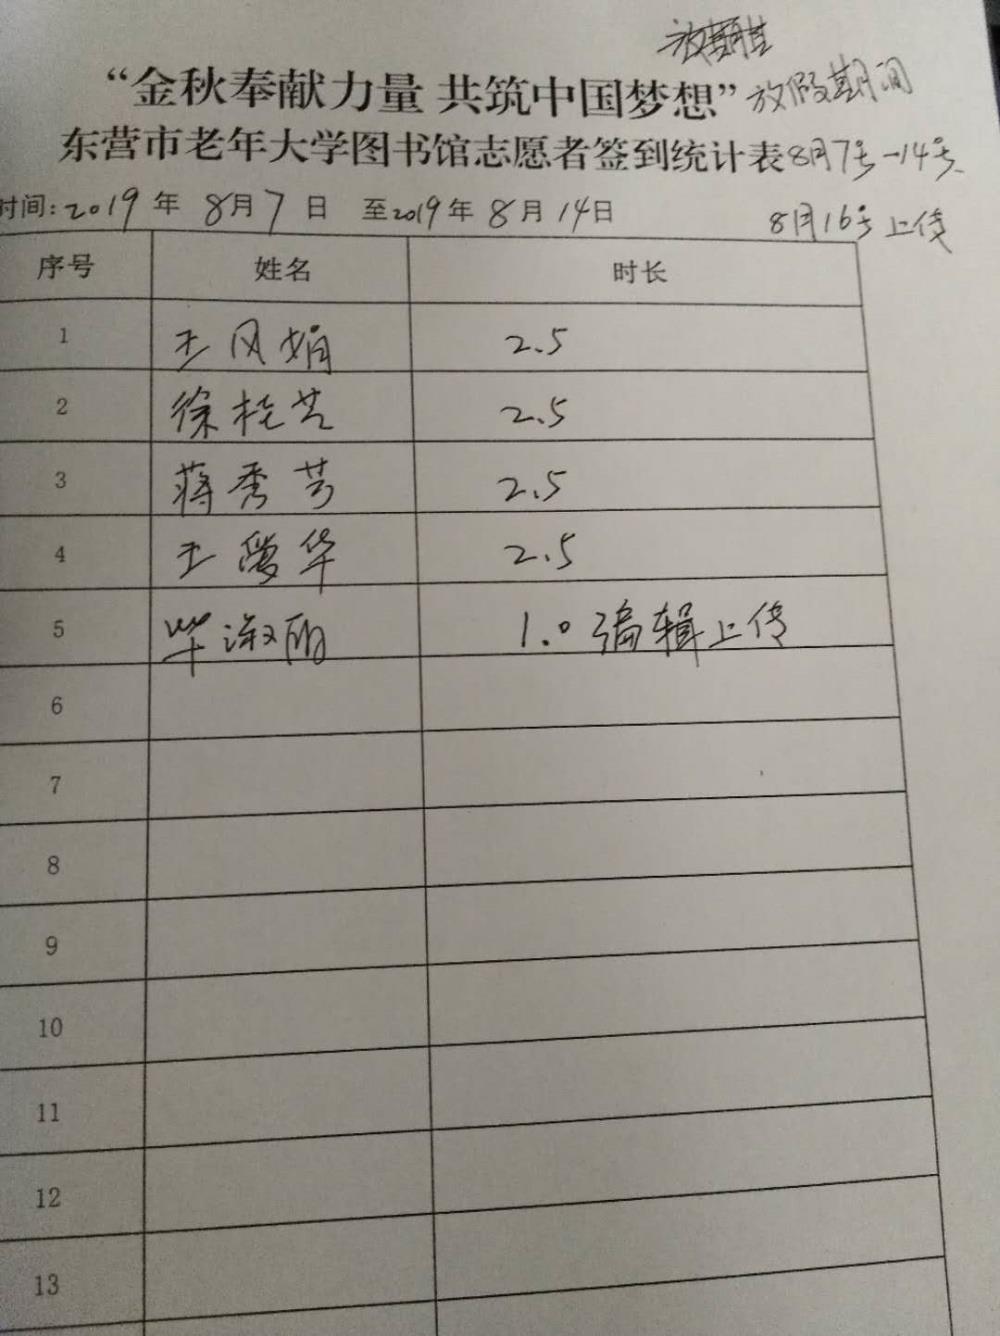 “金秋奉献力量 共筑中国梦想”放假期间
东营市老年大学图书馆志愿者签到统计表8月7号-14号
时间:2019年8月7日 至2019年8月14日
8月16号上传
序号 姓名 时长
1 王风娟 2.5
2 徐桂芝 2.5
3 蒋秀芳 2.5
4 王爱华 2.5
5 毕淑丽 1.0编辑上传
6
7
8
9
10
11
12
13